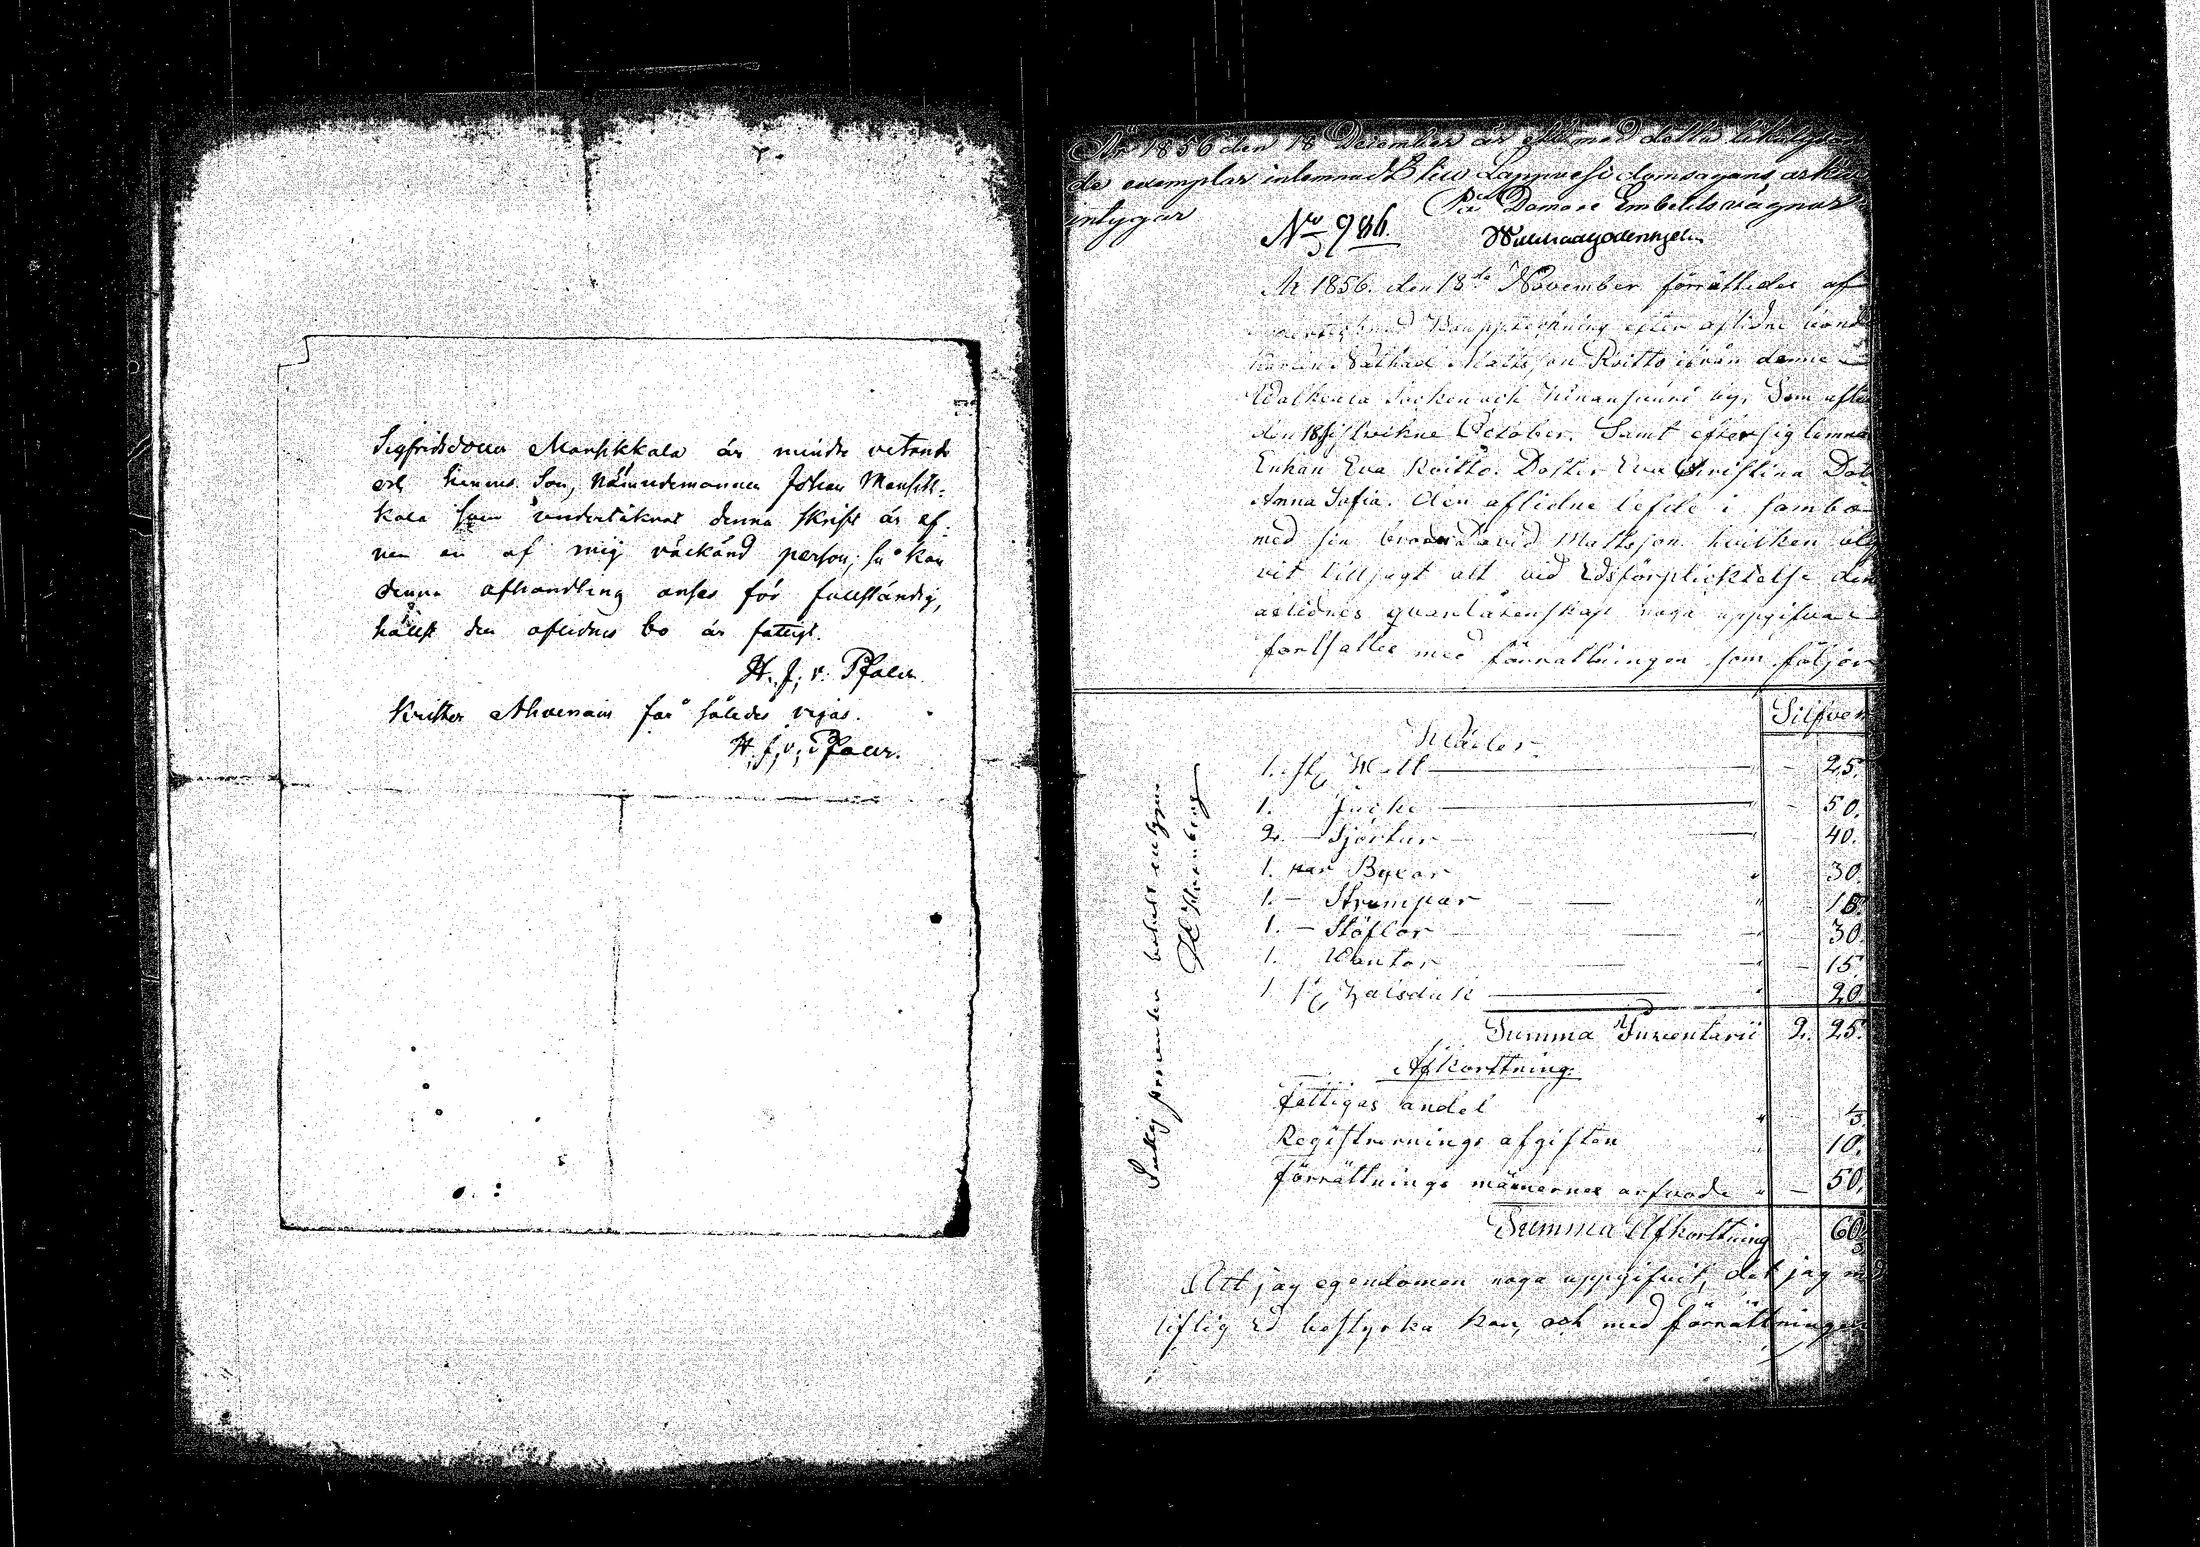 Sigfridsdotter Mansikkala är mindre vetande
och hennes Son, Nämndemannen Johan Mansik-
kala som undertiknat denna skrift är äf-
ven en af mig välkänd person, så kan
denna afhandling anses för fullständig,
hälst den aflidnes bo är fattigt.
H. J. v. Pfaler
Krister Ahvenain får således vigas.
H. J. v. Pfaler.
År 1856 den 18 December är ett med detta likalydan
de exemplar inlemnadt till Lappvesi domsagans arkiv
intygar
På Domare Embetets vägnar
No 986.
År 1856. den 18de November förrättades af
Bouppteckning efter aflidne
Mattsson Koitto ifrån denne
Walkeala Socken och by, Som afled
den 18 sistvikne October. Samt efter sig lemna
Enkan Eva Koitto. Dotter Eva Christina Dot
Anna Sofia. den aflidne lefde i sambo
med sin broder David Mattsson hvilken
vit tillsagt att vid Edsförplicktelse den
aflidnes qvarlåtenskap noga uppgifva
fortsattes med förrättningen som följer
Silfver
Kläder
1. st. 25.
1. 50.
2. - Sjortur 40.
1. par Byxor 30.
1. - Strumpar 15.
1. - Stöflor 30.
1. Vantar 15.
1 st. Halsduk 20.
Summa Inventarii 2. 25.
Afkorttning.
fattigas andel
Registrernings afgiften 10.
förrättnings männernes arfvode 50.
Summa Afkorttning 60
Att jag egendomen noga uppgifvit, det jag med
liflig Ed bestyrka kan, och med förrättningen
fattig procenten betalt intygar